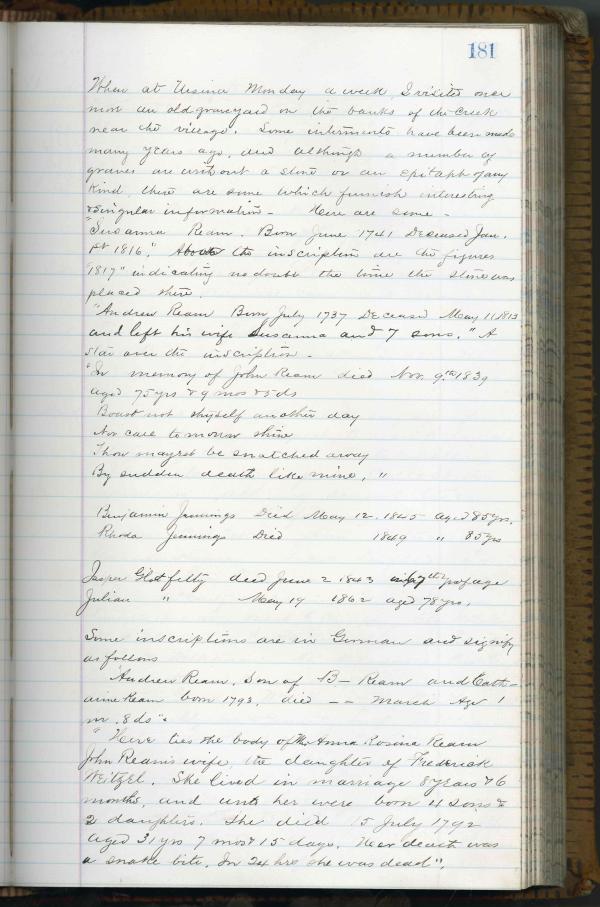 181
When at Ursina Monday a week I visited once
more an old graveyard on the banks of the creek
near the village. Some interments have been made
many years ago, and although a number of
graves are without a stone or an epitaph of any
kind there are some which furnish interesting
& singular information - Here are some -
"Susanna Ream. Born June 1741 Deceased Jan.
1st 1816." Above the inscription are the figures
"1817" indicating no doubt the time the stone was
placed there.
"Andrew Ream Born July 1737 Deceased May 11 1813
and left his wife Susanna and 7 sons." A
star over the inscription -
"In memory of John Ream died Nov. 9th 1839
aged 75 yrs & 9 mos & 5 ds
Boast not thyself another day
Nor care to mourn thine
Thou mayest be snatched away
By sudden death like mine. "
Benjamin Jennings Died May 12. 1845 aged 85 yrs.
Rhoda Jennings Died 1849 " 85 yrs
Jasper Glotfelty died June 2 1843 in 67th yr of age
Julian " May 19 1862 aged 78 yrs.
Some inscriptions are in German and signify
as follows
"Andrew Ream. Son of B— Ream and Cath-
arine Ream born 1793, died -- March Age 1
m. 8 ds".
"Here lies the body of Anna Rosina Ream
John Ream's wife, the daughter of Frederick
Weitzel. She lived in marriage 8 years & 6
months, and unto her were born 4 sons &
2 daughters. She died 15 July 1792
aged 31 yrs 7 mos & 15 days. Her death was
a snake bite. In 24 hrs she was dead".